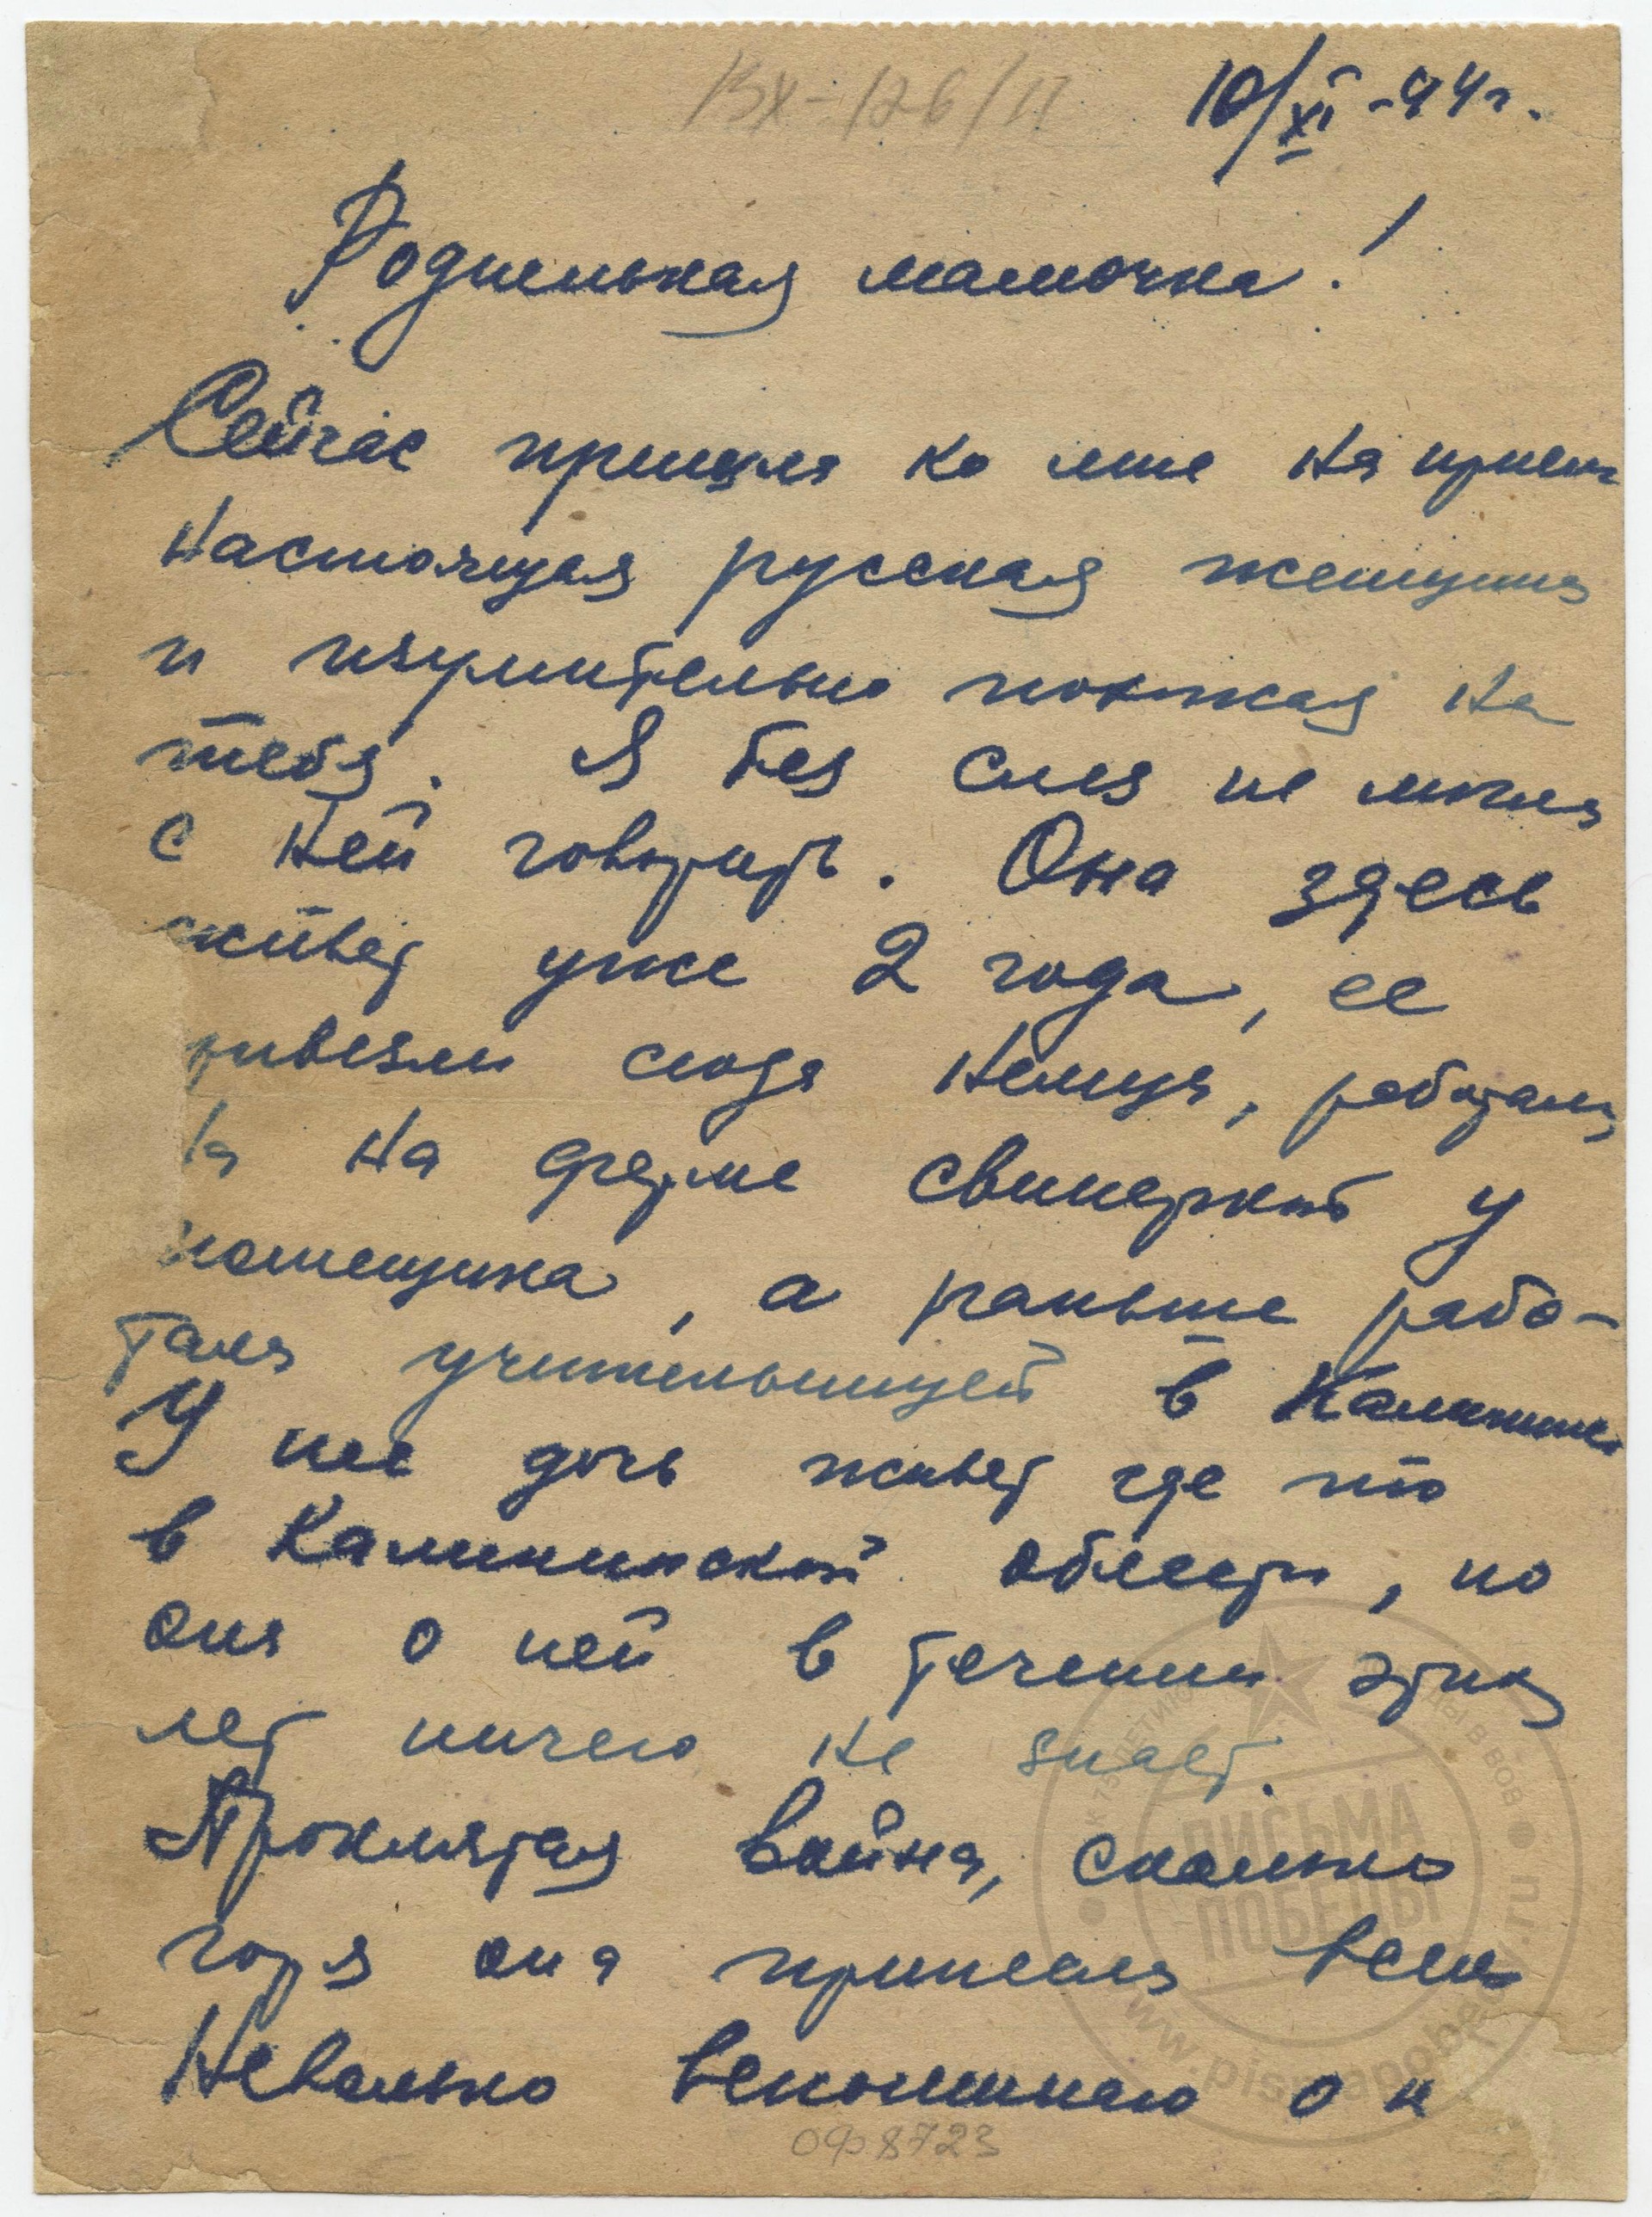 ВХ-126/11
10/XI-44г.
Родненькая мамочка!
Сейчас пришла ко мне на прием
настоящая русская женщина
и изумительно похожая на
тебя. Я без слез не могла
с ней говорить. Она здесь
живет уже 2 года, ее
ривезли сюда немцы, работала
на на ферме свинаркой у
помещика, а раньше рабо-
тала учительницей в Калинине
У нее дочь живет где то
в Калининской области, но
она о ней в течении этих
лет ничего не знает.
Проклятая война, сколько
горя она принесла всем
Невольно вспоминаю о н
ОФ 8723
К 75-ЛЕТИЮ ПОБЕДЫ В ВОВ
ПИСЬМА
ПОБЕДЫ
www.pismapobedy.ru